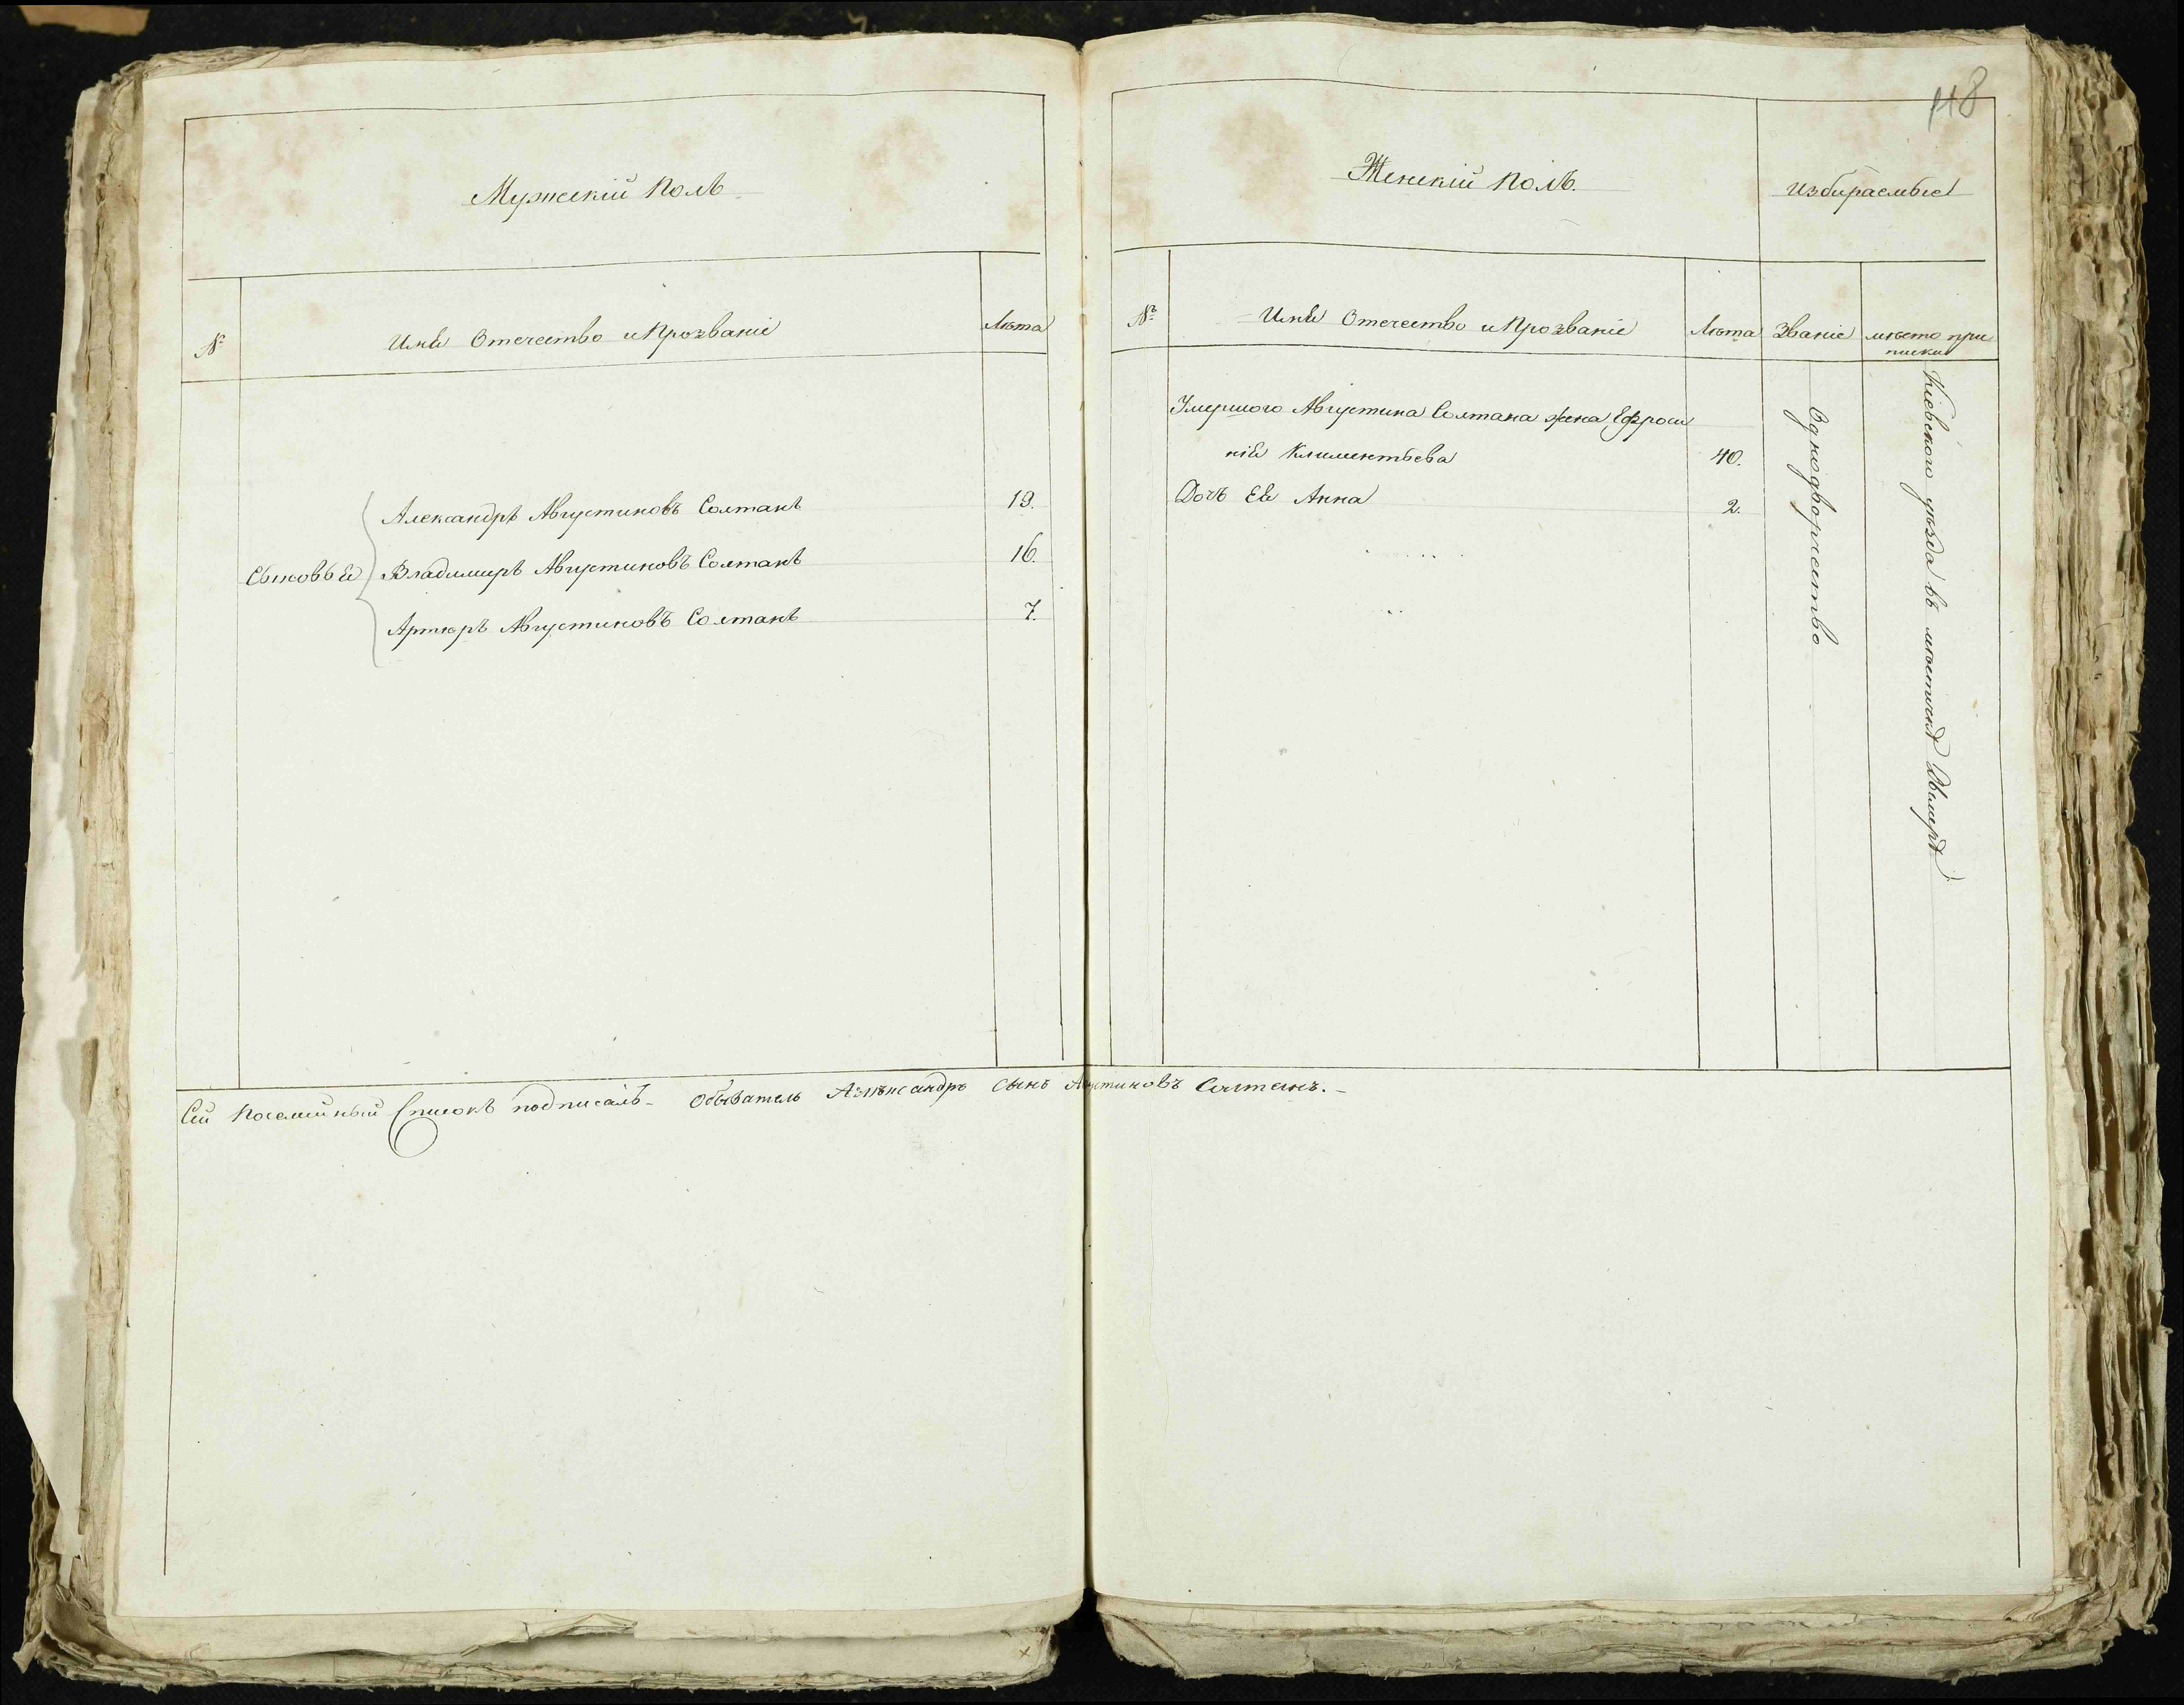 118
Мужескій Полъ
№
Имя Отечество и Прозваніе
Лѣта
Сыновья Ея
Александръ Августиновъ Солтанъ 19.
Владимиръ Августиновъ Солтанъ 16.
Артюръ Августиновъ Солтанъ 7.
Женскій Полъ.
Избираемые
№
Имя Отечество и Прозваніе
Лѣта
Званіе
мѣсто при
писки
Умершого Августина Солтана жена Ефроси
нія Климентьева 40.
Дочь Ея Анна 2.
Однодворчество
Кіевского уѣзда въ мѣстичкѣ Дымерѣ
Сей Посемейный Списокъ подписалъ - Обыватель Александръ Сынъ Августиновъ Солтанъ. -